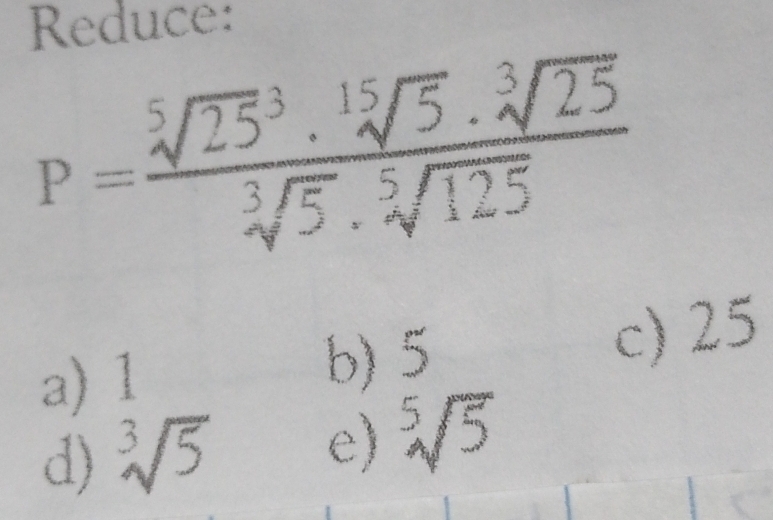 Reduce:
P = \frac{\sqrt[5]{25}^3 . \sqrt[15]{5} . \sqrt[3]{25}}{\sqrt[3]{5} . \sqrt[5]{125}}
a) 1 b) 5 c) 25
d) \sqrt[3]{5} e) \sqrt[5]{5}